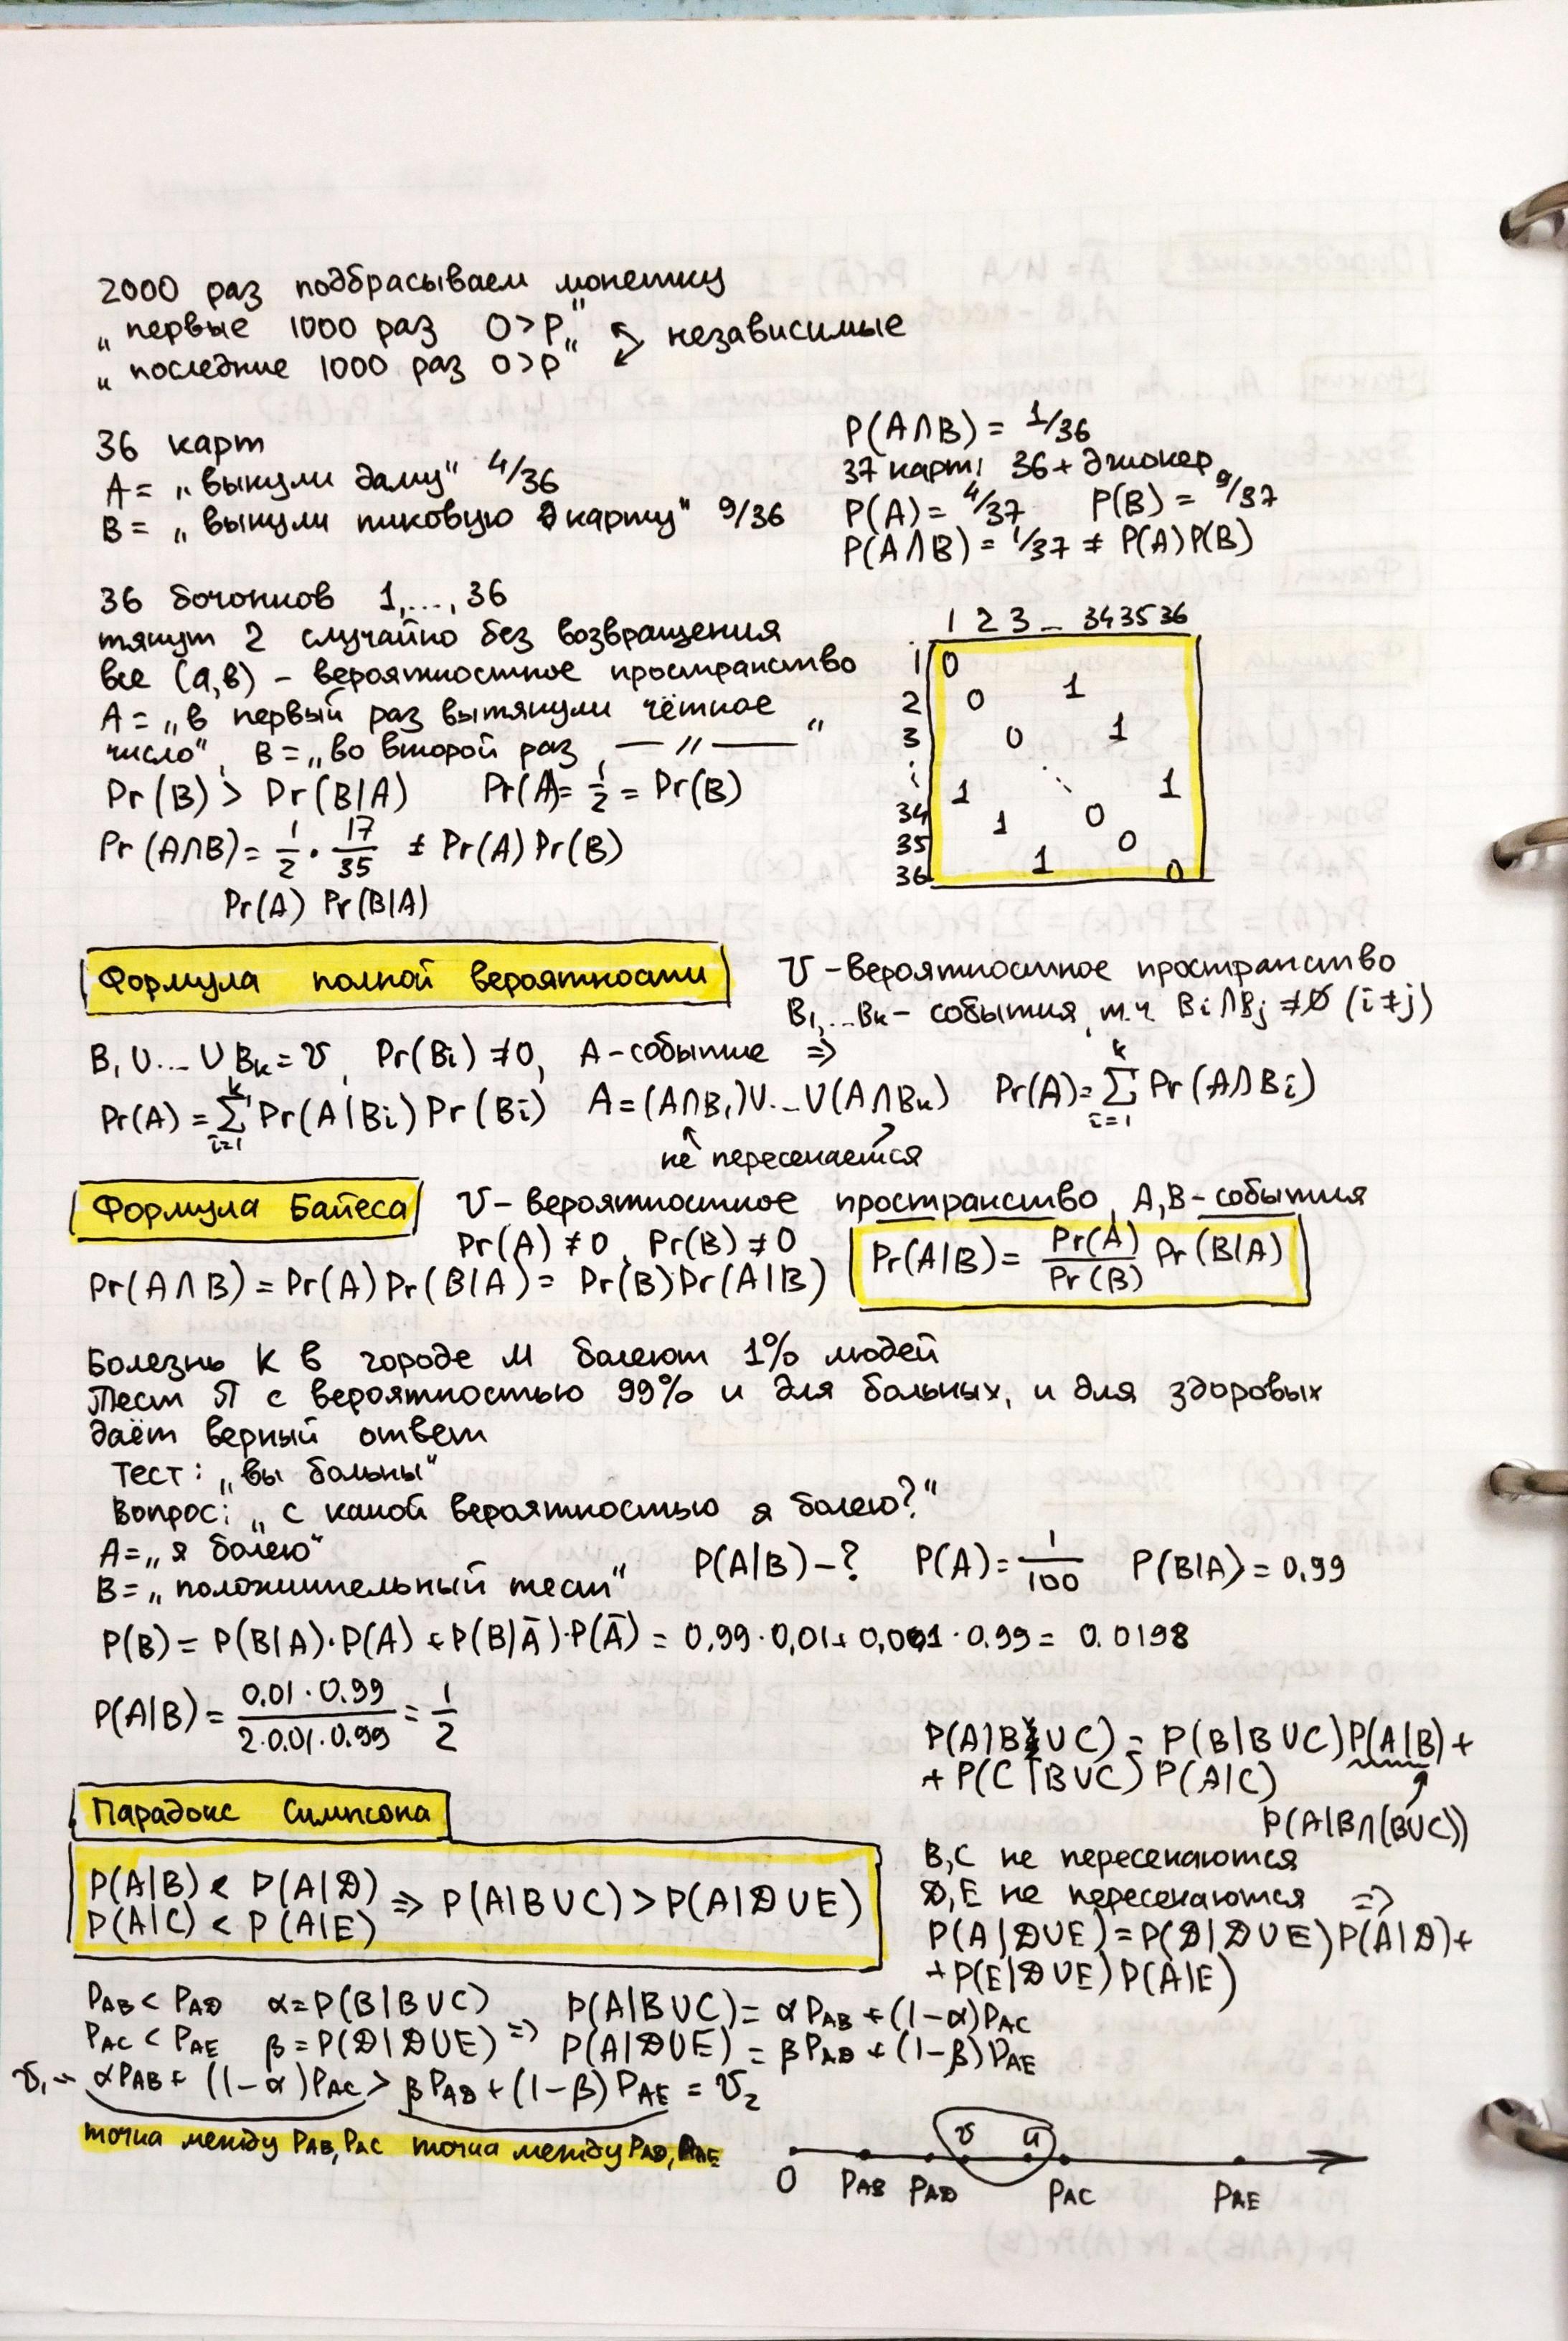 2000 раз подбрасываем монетку
„первые 1000 раз О>Р„
„последние 1000 раз О>Р"
независимые
36 карт
A = „вынули даму" 4/36
B = „вынули пиковую карту" 9/36
P(A∩B) = 1/36
37 карт: 36 + джокер
P(A) = 4/37 P(B) = 9/37
P(A∩B) = 1/37 ≠ P(A)P(B)
36 бочонков 1,..., 36
тянут 2 случайно без возвращения
все (a,b) - вероятностное пространство
A = „в первый раз вытянули чётное
число", B = „во второй раз —〃— "
Pr(B) > Pr(B|A) Pr(A) = 1/2 = Pr(B)
Pr(A∩B) = 1/2 · 17/35 ≠ Pr(A) Pr(B)
Pr(A) Pr(B|A)
1 2 3 ... 34 35 36
1 0
2 0 1
3 0 1
⋮ 1 ⋱ 1
34 1 0
35 0
36 1 0
Формула полной вероятности
U - вероятностное пространство
B₁,...Bₖ - события, т.ч. Bi∩Bj ≠ ∅ (i≠j)
B₁∪...∪Bₖ = U, Pr(Bi) ≠ 0, A - событие ⇒
Pr(A) = ∑ᵢ₌₁ᵏ Pr(A|Bi) Pr(Bi) A = (A∩B₁)∪...∪(A∩Bₖ) Pr(A) = ∑ᵢ₌₁ᵏ Pr(A∩Bi)
не пересекается
Формула Байеса U - вероятностное пространство, A,B - события
Pr(A) ≠ 0, Pr(B) ≠ 0
Pr(A∩B) = Pr(A) Pr(B|A) = Pr(B) Pr(A|B)
Pr(A|B) = Pr(A)/Pr(B) Pr(B|A)
Болезнь К в городе М болеют 1% людей
Тест П с вероятностью 99% и для больных, и для здоровых
даёт верный ответ
Тест: „вы больны"
Вопрос: „с какой вероятностью я болею?"
A = „я болею"
B = „положительный тест" P(A|B) - ? P(A) = 1/100 P(B|A) = 0,99
P(B) = P(B|A)·P(A) + P(B|Ā)·P(Ā) = 0,99·0,01 + 0,01·0,99 = 0.0198
P(A|B) = 0,01·0,99 / 2·0,01·0,99 = 1/2
P(A|B∪C) = P(B|B∪C)P(A|B) +
+ P(C|B∪C) P(A|C)
P(A|B∩(B∪C))
Парадокс Симпсона
P(A|B) < P(A|D)
P(A|C) < P(A|E) ⇒ P(A|B∪C) > P(A|D∪E)
B,C не пересекаются
D,E не пересекаются ⇒
P(A|D∪E) = P(D|D∪E)P(A|D) +
+ P(E|D∪E) P(A|E)
PAB < PAD α = P(B|B∪C) P(A|B∪C) = αPAB + (1-α)PAC
PAC < PAE β = P(D|D∪E) ⇒ P(A|D∪E) = βPAD + (1-β)PAE
v₁ = αPAB + (1-α)PAC > βPAD + (1-β)PAE = v₂
точка между PAB, PAC точка между PAD, PAE
v u
0 PAB PAD PAC PAE